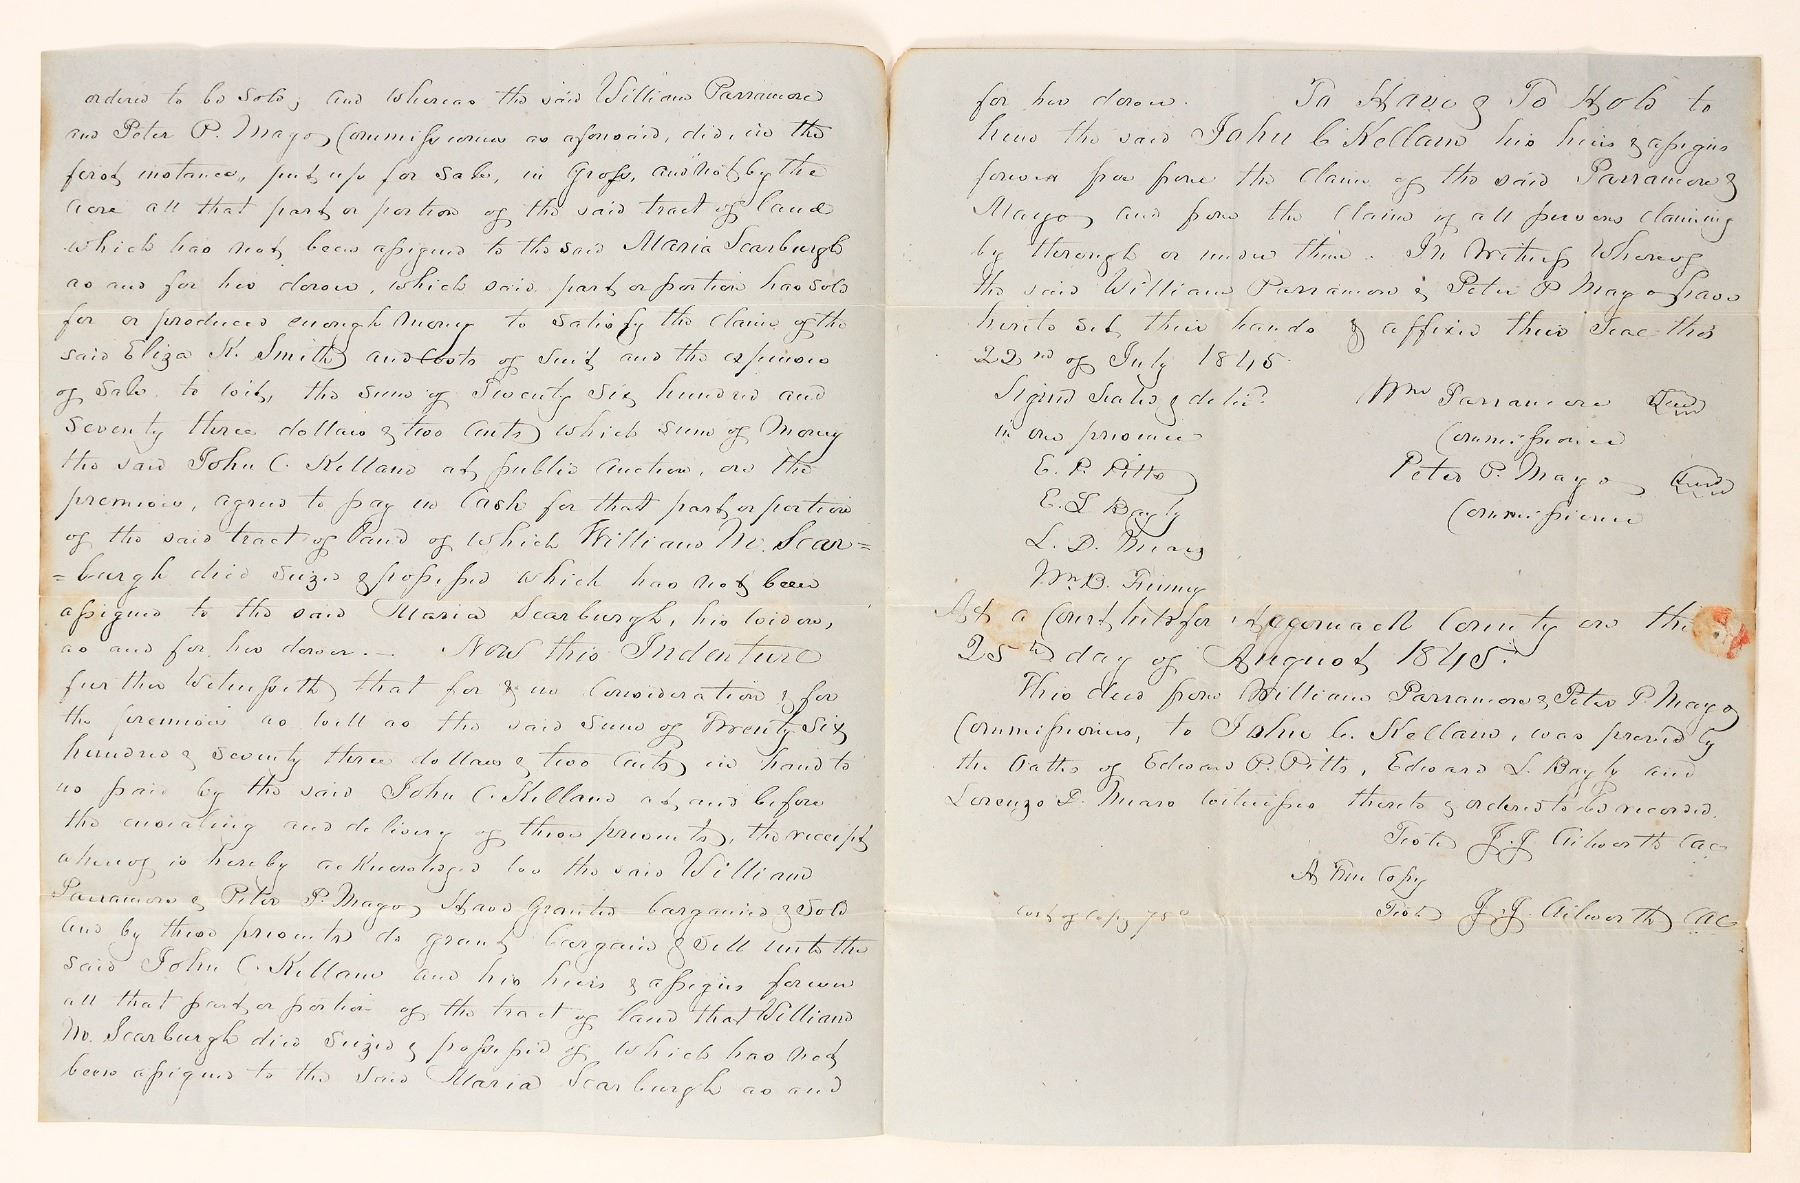 ordered to be sold; and whereas the said William Parramore
and Peter P. Mayo, Commissioners as aforesaid, did, in the
first instance, put up for sale, in Gross, and not by the
acre all that part or portion of the said tract of land
which has not been assigned to the said Maria Scarburgh
as and for her dower, which said part or portion has sold
for or produced enough money to satisfy the claim of the
said Eliza K. Smith and costs of suit and the expenses
of sale to wit, the sum of Twenty Six hundred and
seventy three dollars & two cents, which sum of money
the said John C. Kelland at public auction, on the
premises, agreed to pay in Cash for that part or portion
of the said tract of land of which William M. Scar=
=burgh died seized & possessed which has not been
assigned to the said Maria Scarburgh, his widow,
as and for her dower. — Now this Indenture
further Witnesseth that for & in Consideration & for
the premises as well as the said sum of Twenty Six
hundred & seventy three dollars & two Cents, in hand to
us paid by the said John C. Kelland at and before
the ensealing and delivery of these presents, the receipt
whereof is hereby acknowledged we the said William
Parramore & Peter P. Mayo, Have Granted bargained & Sold
and by these presents do grant bargain & sell unto the
said John C. Kelland and his heirs & assigns forever
all that part or portion of the tract of land that William
M. Scarburgh died seized & possessed of which has not
been assigned to the said Maria Scarburgh as and
for her dower. To Have & To Hold to
him the said John C Kelland his heirs & assigns
forever free from the claim of the said Parramore &
Mayo, and from the claim of all persons claiming
by through or under them. In Witness Whereof
the said William Parramore & Peter P Mayo have
hereto set their hands & affixed their Seal this
22nd of July 1845
Signed Sealed & deliv.d
in our presence
E. P. Pitts
E. L Bayly
L. D. Mears
Wm. B. Finney
Wm Parramore Seal
Commissioner
Peter P. Mayo Seal
Commissioner
At a Court held for Accomack County on the
25th day of August 1845.
This deed from William Parramore & Peter P. Mayo
Commissioners, to John C. Kelland, was proved by
the Oaths of Edward P. Pitts, Edward L. Bayly and
Lorenzo D. Mears witnesses thereto & ordered to be recorded.
Teste J. J. Ailworth CAC
A True Copy
Teste J. J. Ailworth CAC
cost of Copy 75c